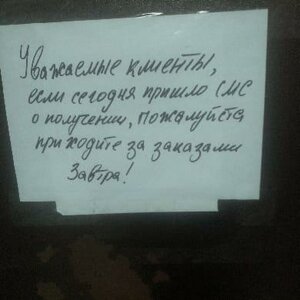 Уважаемые клиенты,
если сегодня пришло СМС
о получении, пожалуйста
приходите за заказами
Завтра!